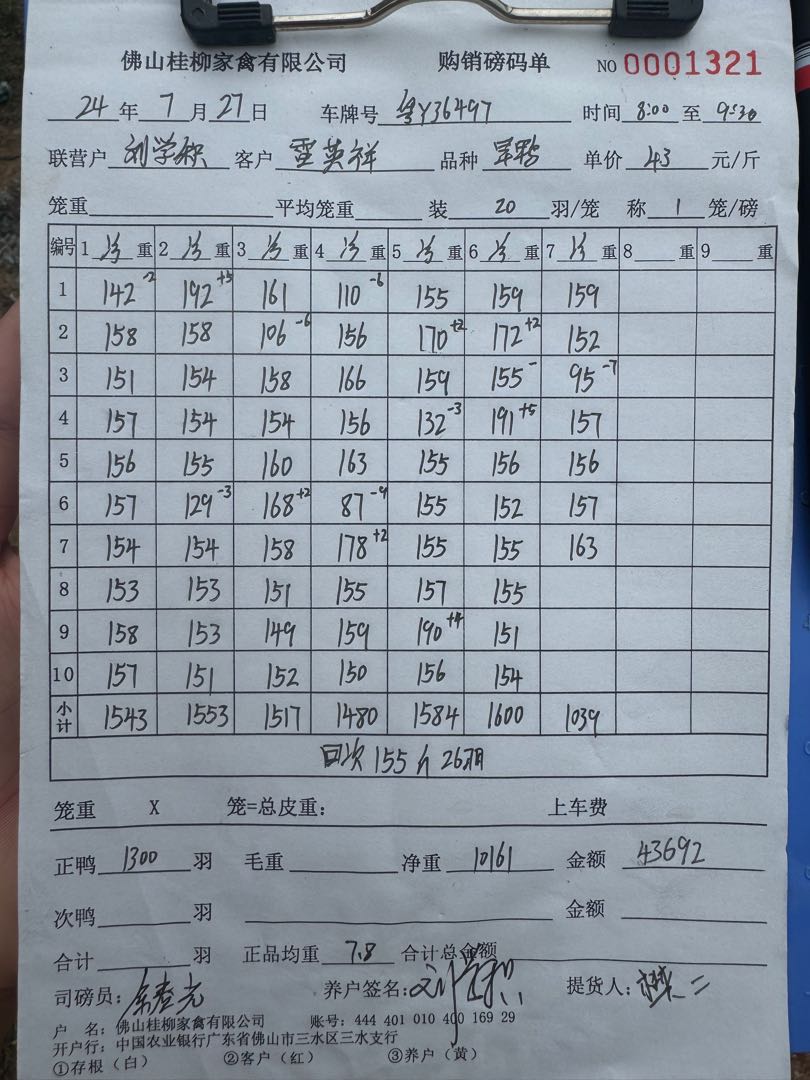 佛山桂柳家禽有限公司 购销磅码单 NO 0001321
24 年 7 月 27 日 车牌号 粤Y36497 时间 8:00 至 9:30
联营户 刘学积 客户 雷英祥 品种 单价 43 元/斤
笼重 平均笼重 装 20 羽/笼 称 1 笼/磅
编号 1 重 2 重 3 重 4 重 5 重 6 重 7 重 8 重 9 重
1 142 -2 192 +5 161 110 -6 155 159 159
2 158 158 106 -6 156 170 +2 172 +2 152
3 151 154 158 166 159 155 - 95 -7
4 157 154 154 156 132 -3 191 +5 157
5 156 155 160 163 155 156 156
6 157 129 -3 168 +2 87 -9 155 152 157
7 154 154 158 178 +2 155 155 163
8 153 153 151 155 157 155
9 158 153 149 159 190 +4 151
10 157 151 152 150 156 154
小计 1543 1553 1517 1480 1584 1600 1039
回次 155斤 26羽
笼重 X 笼=总皮重: 上车费
正鸭 1300 羽 毛重 净重 10161 金额 43692
次鸭 羽 金额
合计 羽 正品均重 7.8 合计总金额
司磅员: 养户签名: 提货人:
户 名: 佛山桂柳家禽有限公司 账号: 444 401 010 400 169 29
开户行: 中国农业银行广东省佛山市三水区三水支行
①存根(白) ②客户(红) ③养户(黄)